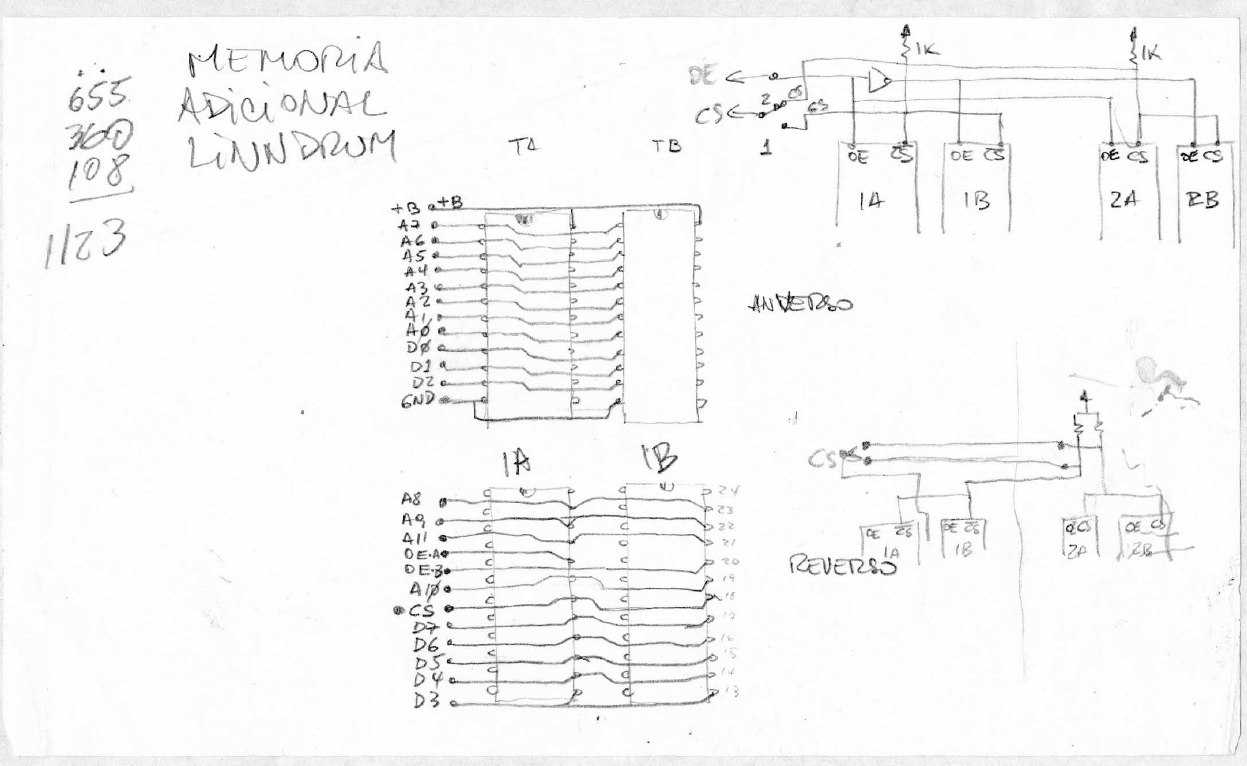 655
360
108
1123
MEMORIA
ADICIONAL
LINNDRUM
OE
CS
2
CS
1
1K
1K
OE CS
OE CS
OE CS
OE CS
1A
1B
2A
2B
TB
+B +B
A7
A6
A5
A4
A3
A2
A1
AØ
DØ
D1
D2
GND
ANVERSO
1A
1B
A8
A9
A11
OE-A
OE-B
A1Ø
CS
D7
D6
D5
D4
D3
24
23
22
21
20
19
18
17
16
15
14
13
CS
OE CS
OE CS
OE CS
1A
1B
2A
2B
REVERSO